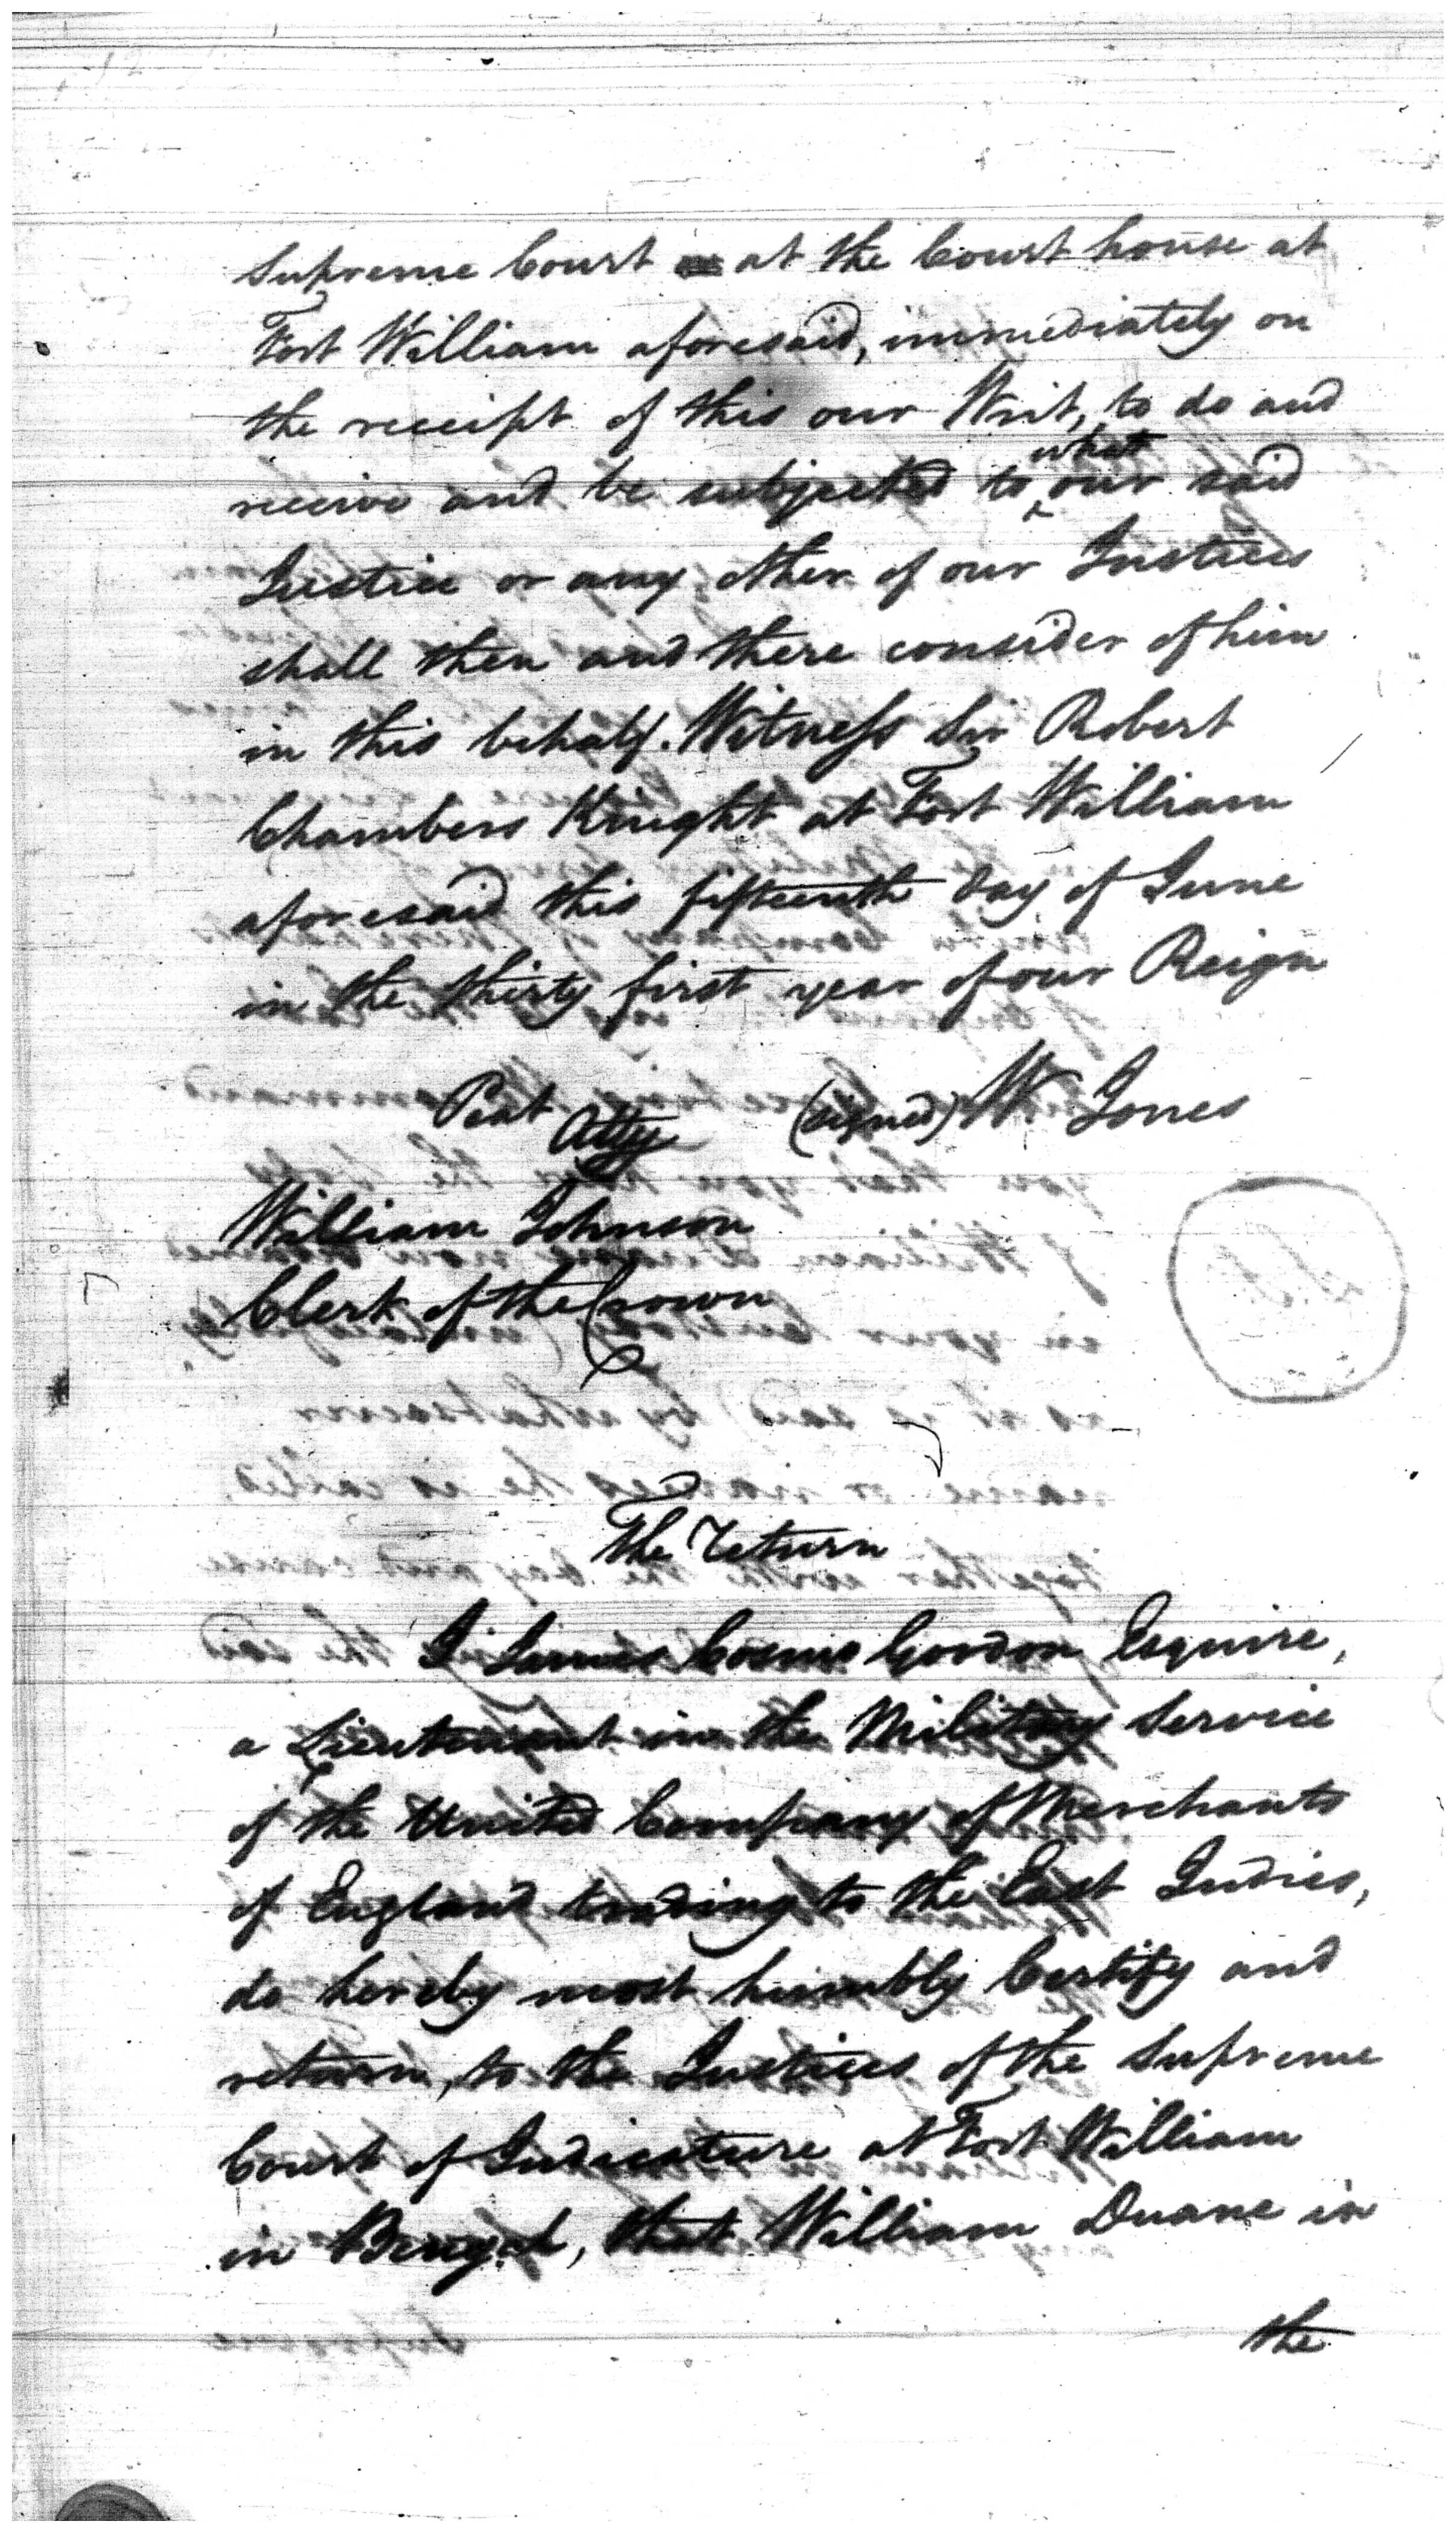 Supreme Court at the Court house at
Fort William aforesaid, immediately on
the receipt of this our Writ, to do and
receive and be subjected to what our said
Justice or any other of our Justices
shall then and there consider of him
in this behalf. Witness Sir Robert
Chambers Knight at Fort William
aforesaid this fifteenth day of June
in the thirty first year of our Reign
Peat Atty (signed) W Jones
William Johnson
Clerk of the Crown
The Return
I James Cosmo Gordon Esquire,
a Lieutenant in the Military Service
of the United Company of Merchants
of England trading to the East Indies,
do hereby most humbly Certify and
return, to the Justices of the Supreme
Court of Judicature at Fort William
in Bengal, that William Duane in
the